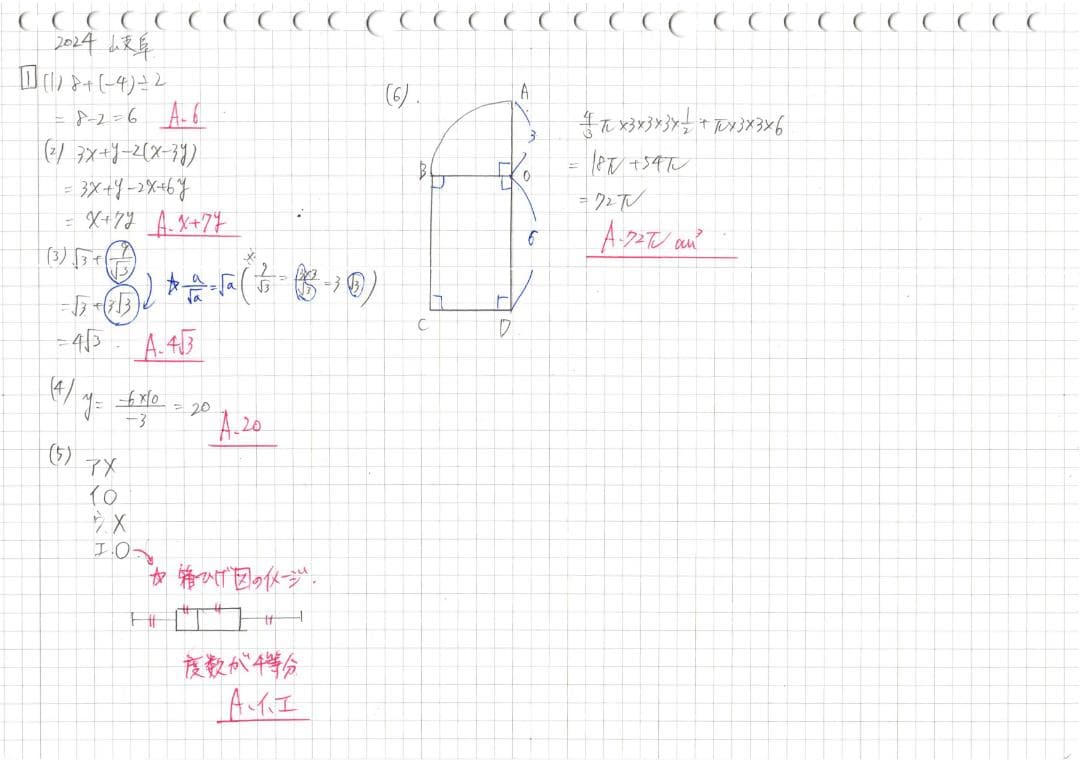 2024 岐阜
1 (1) 8+(-4)÷2
= 8-2=6 A.6
(2) 3x+y-2(x-3y)
= 3x+y-2x+6y
= x+7y A.x+7y
(3) √3+9/√3
=√3+3√3 ☆ a/√a=√a(※ 9/√3=3×3/√3=3√3)
=4√3 A.4√3
(4) y= -6×10/-3 =20
A.20
(5) ア×
イ○
ウ×
エ○
☆ 箱ひげ図のイメージ.
度数が4等分
A.イ、エ
(6).
A
3
B
O
6
C
D
4/3π×3×3×3×1/2+π×3×3×6
= 18π+54π
=72π
A.72π cm³